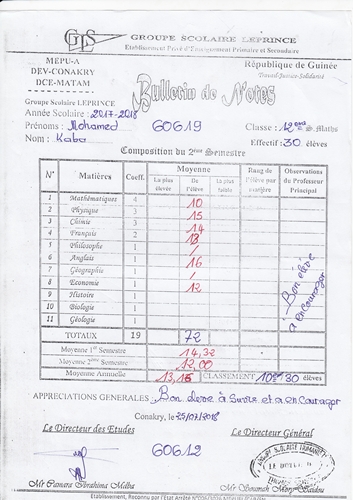 GROUPE SCOLAIRE LEPRINCE
Etablissement Privé d'Enseignement Primaire et Secondaire
MEPU-A
DEV-CONAKRY
DCE-MATAM
République de Guinée
Travail-Justice-Solidarité
Bulletin de Notes
Groupe Scolaire LEPRINCE
Année Scolaire : 2017-2018
Prénoms : Mohamed 60619 Classe : 12ème S. Maths
Nom : Kaba Effectif : 30 élèves
Composition du 2ème Semestre
N° Matières Coeff. Moyenne Rang de l'élève par matière Observations du Professeur Principal
La plus élevée De l'élève La plus faible
1 Mathématiques 4 10
2 Physique 3 15
3 Chimie 3 14
4 Français 2 13
5 Philosophie 1 /
6 Anglais 1 16
7 Géographie 1 /
8 Economie 1 12
9 Histoire 1
10 Biologie 1
11 Géologie 1
Bon élève à encourager
TOTAUX 19 72
Moyenne 1er Semestre 14,32
Moyenne 2ème Semestre 12,00
Moyenne Annuelle 13,16 CLASSEMENT 10è/30 élèves
APPRECIATIONS GENERALES : Bon élève à suivre et à encourager
Conakry, le 25/07/2018
Le Directeur des Etudes 60612 Le Directeur Général
Mr Camara Ibrahima